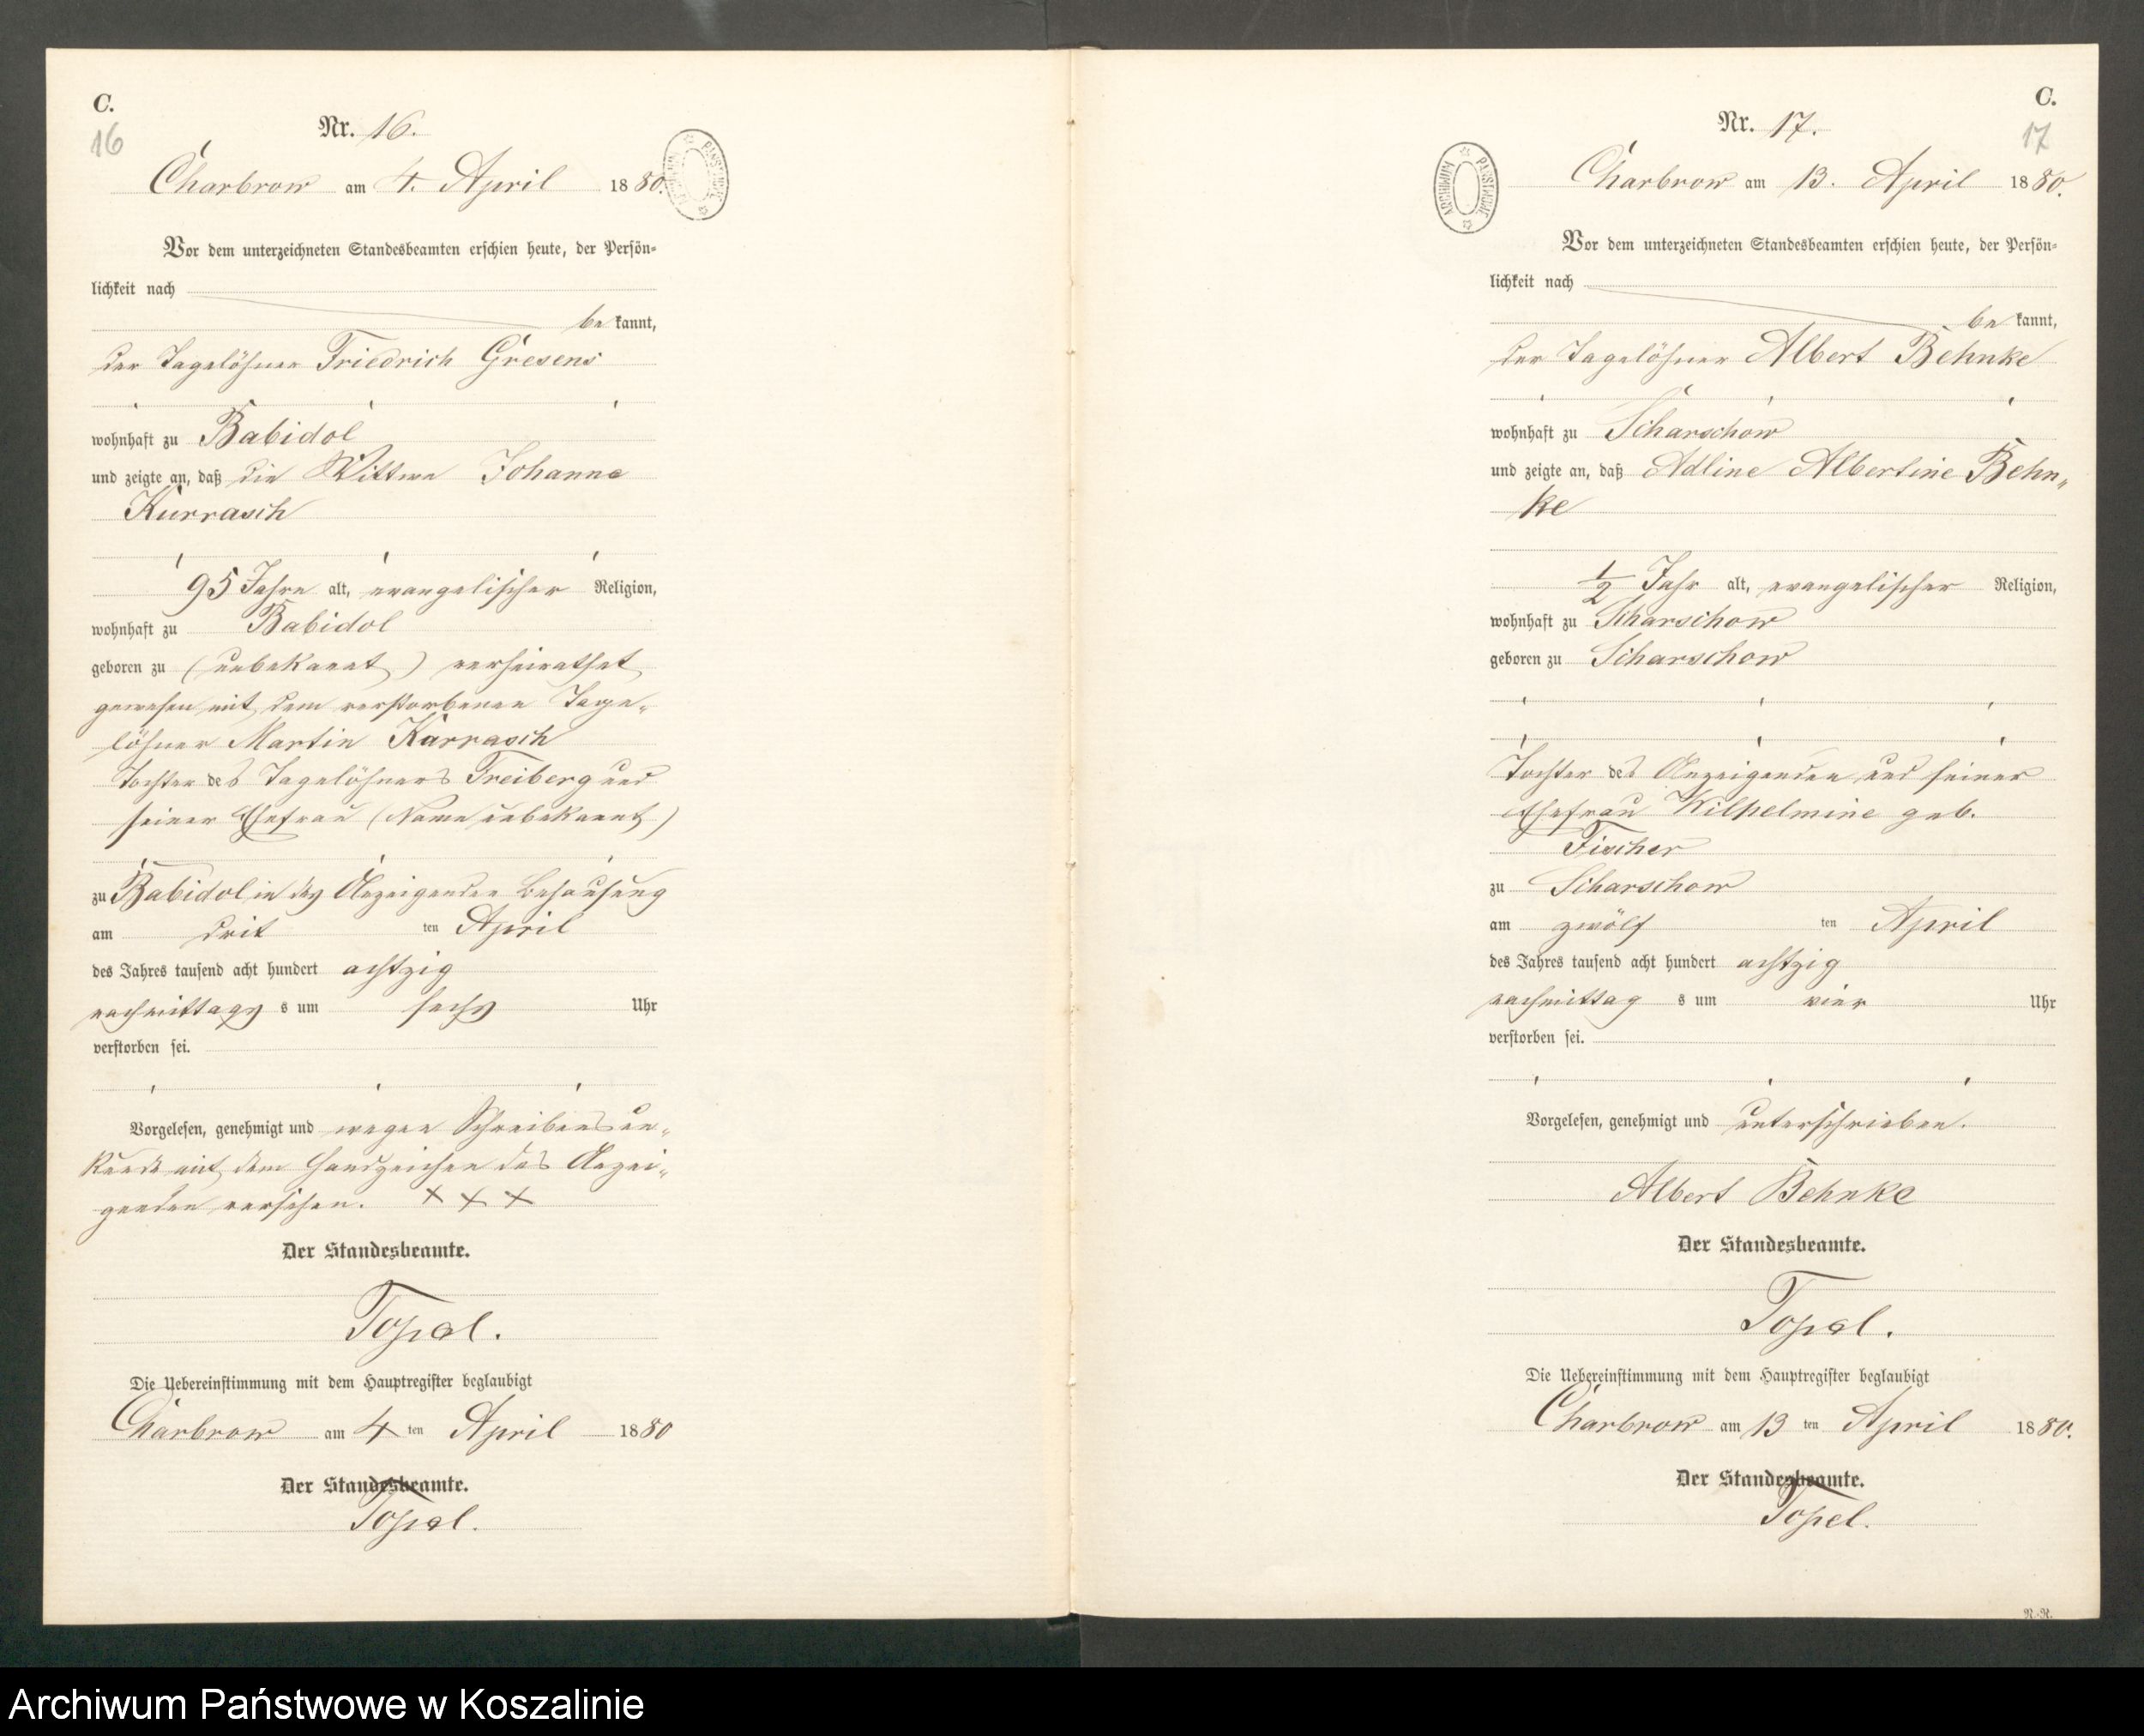 C.
16
Nr. 16.
ARCHIWUM PAŃSTWOWE
Charbrow am 4. April 1880.
Vor dem unterzeichneten Standesbeamten erschien heute, der Persön-
lichkeit nach
be kannt,
der Tagelöhner Friedrich Gresens
wohnhaft zu Babidol
und zeigte an, daß die Wittwe Johanne
Kurrasch
95 Jahre alt, evangelischer Religion,
wohnhaft zu Babidol
geboren zu (unbekannt) verheirathet
gewesen mit dem verstorbenen Tage-
löhner Martin Karrasch
Tochter des Tagelöhners Freiberg und
seiner Ehefrau (Name unbekannt)
zu Babidol in des Anzeigenden Behausung
am drit ten April
des Jahres tausend acht hundert achtzig
nachmittags s um sechs Uhr
verstorben sei.
Vorgelesen, genehmigt und wegen Schreibensun-
kunde mit dem Handzeichen des Anzei-
genden versehen. X X X
Der Standesbeamte.
Topel.
Die Uebereinstimmung mit dem Hauptregister beglaubigt
Charbrow am 4 ten April 1880
Der Standesbeamte.
Topel.
C.
17
Nr. 17.
ARCHIWUM PAŃSTWOWE
Charbrow am 13. April 1880.
Vor dem unterzeichneten Standesbeamten erschien heute, der Persön-
lichkeit nach
be kannt,
der Tagelöhner Albert Behnke
wohnhaft zu Scharschow
und zeigte an, daß Adline Albertine Behn-
ke
1/2 Jahr alt, evangelischer Religion,
wohnhaft zu Scharschow
geboren zu Scharschow
Tochter des Anzeigenden und seiner
Ehefrau Wilhelmine geb.
Fischer
zu Scharschow
am zwölf ten April
des Jahres tausend acht hundert achtzig
nachmittag s um vier Uhr
verstorben sei.
Vorgelesen, genehmigt und unterschrieben.
Albert Behnke
Der Standesbeamte.
Topel.
Die Uebereinstimmung mit dem Hauptregister beglaubigt
Charbrow am 13 ten April 1880.
Der Standesbeamte.
Topel.
R.-R.
Archiwum Państwowe w Koszalinie